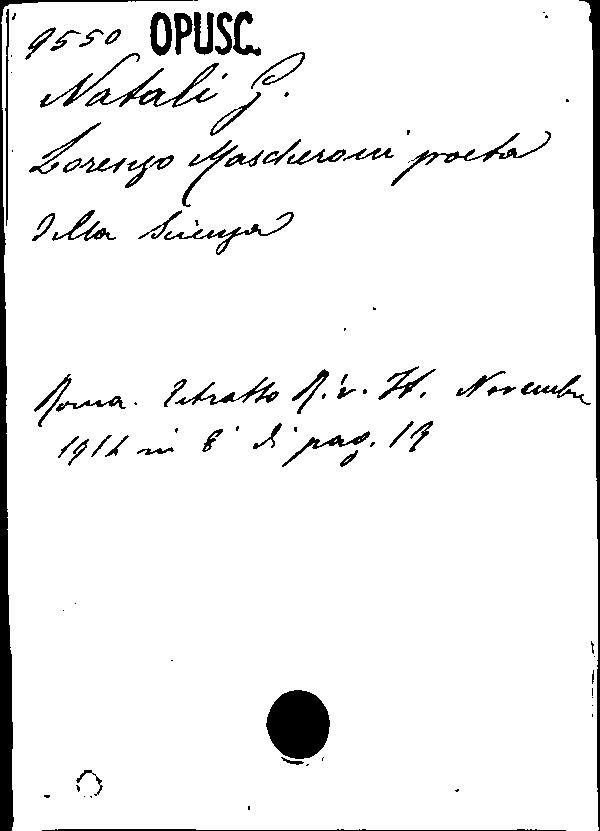 9550 OPUSC.
Natali G.
Lorenzo Mascheroni poeta
della Scienza
Roma. Estratto Riv. It. Novembre
in 8° di pag.